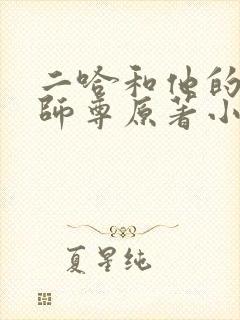 二哈和他的
師尊原著小
夏星纯